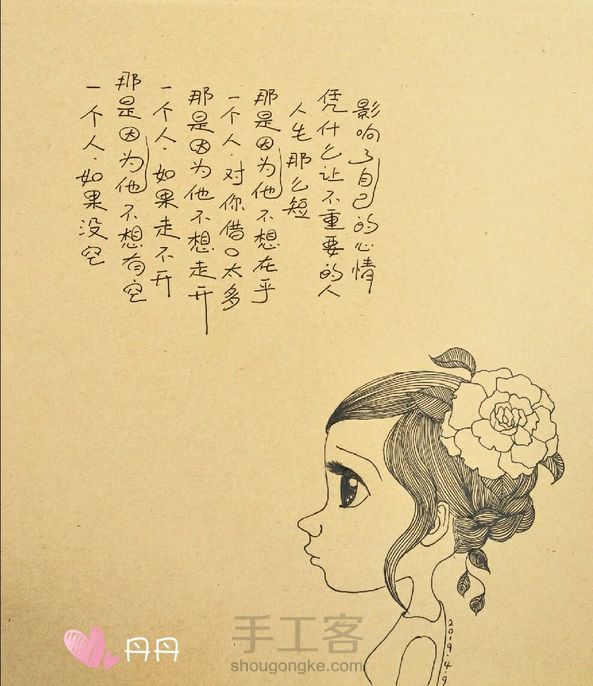 一个人.如果没空
那是因为他不想有空
一个人.如果走不开
那是因为他不想走开
一个人.对你借口太多
那是因为他不想在乎
人生那么短
凭什么让不重要的人
影响了自己的心情
2019.4.9
手工客
shougongke.com
丹丹